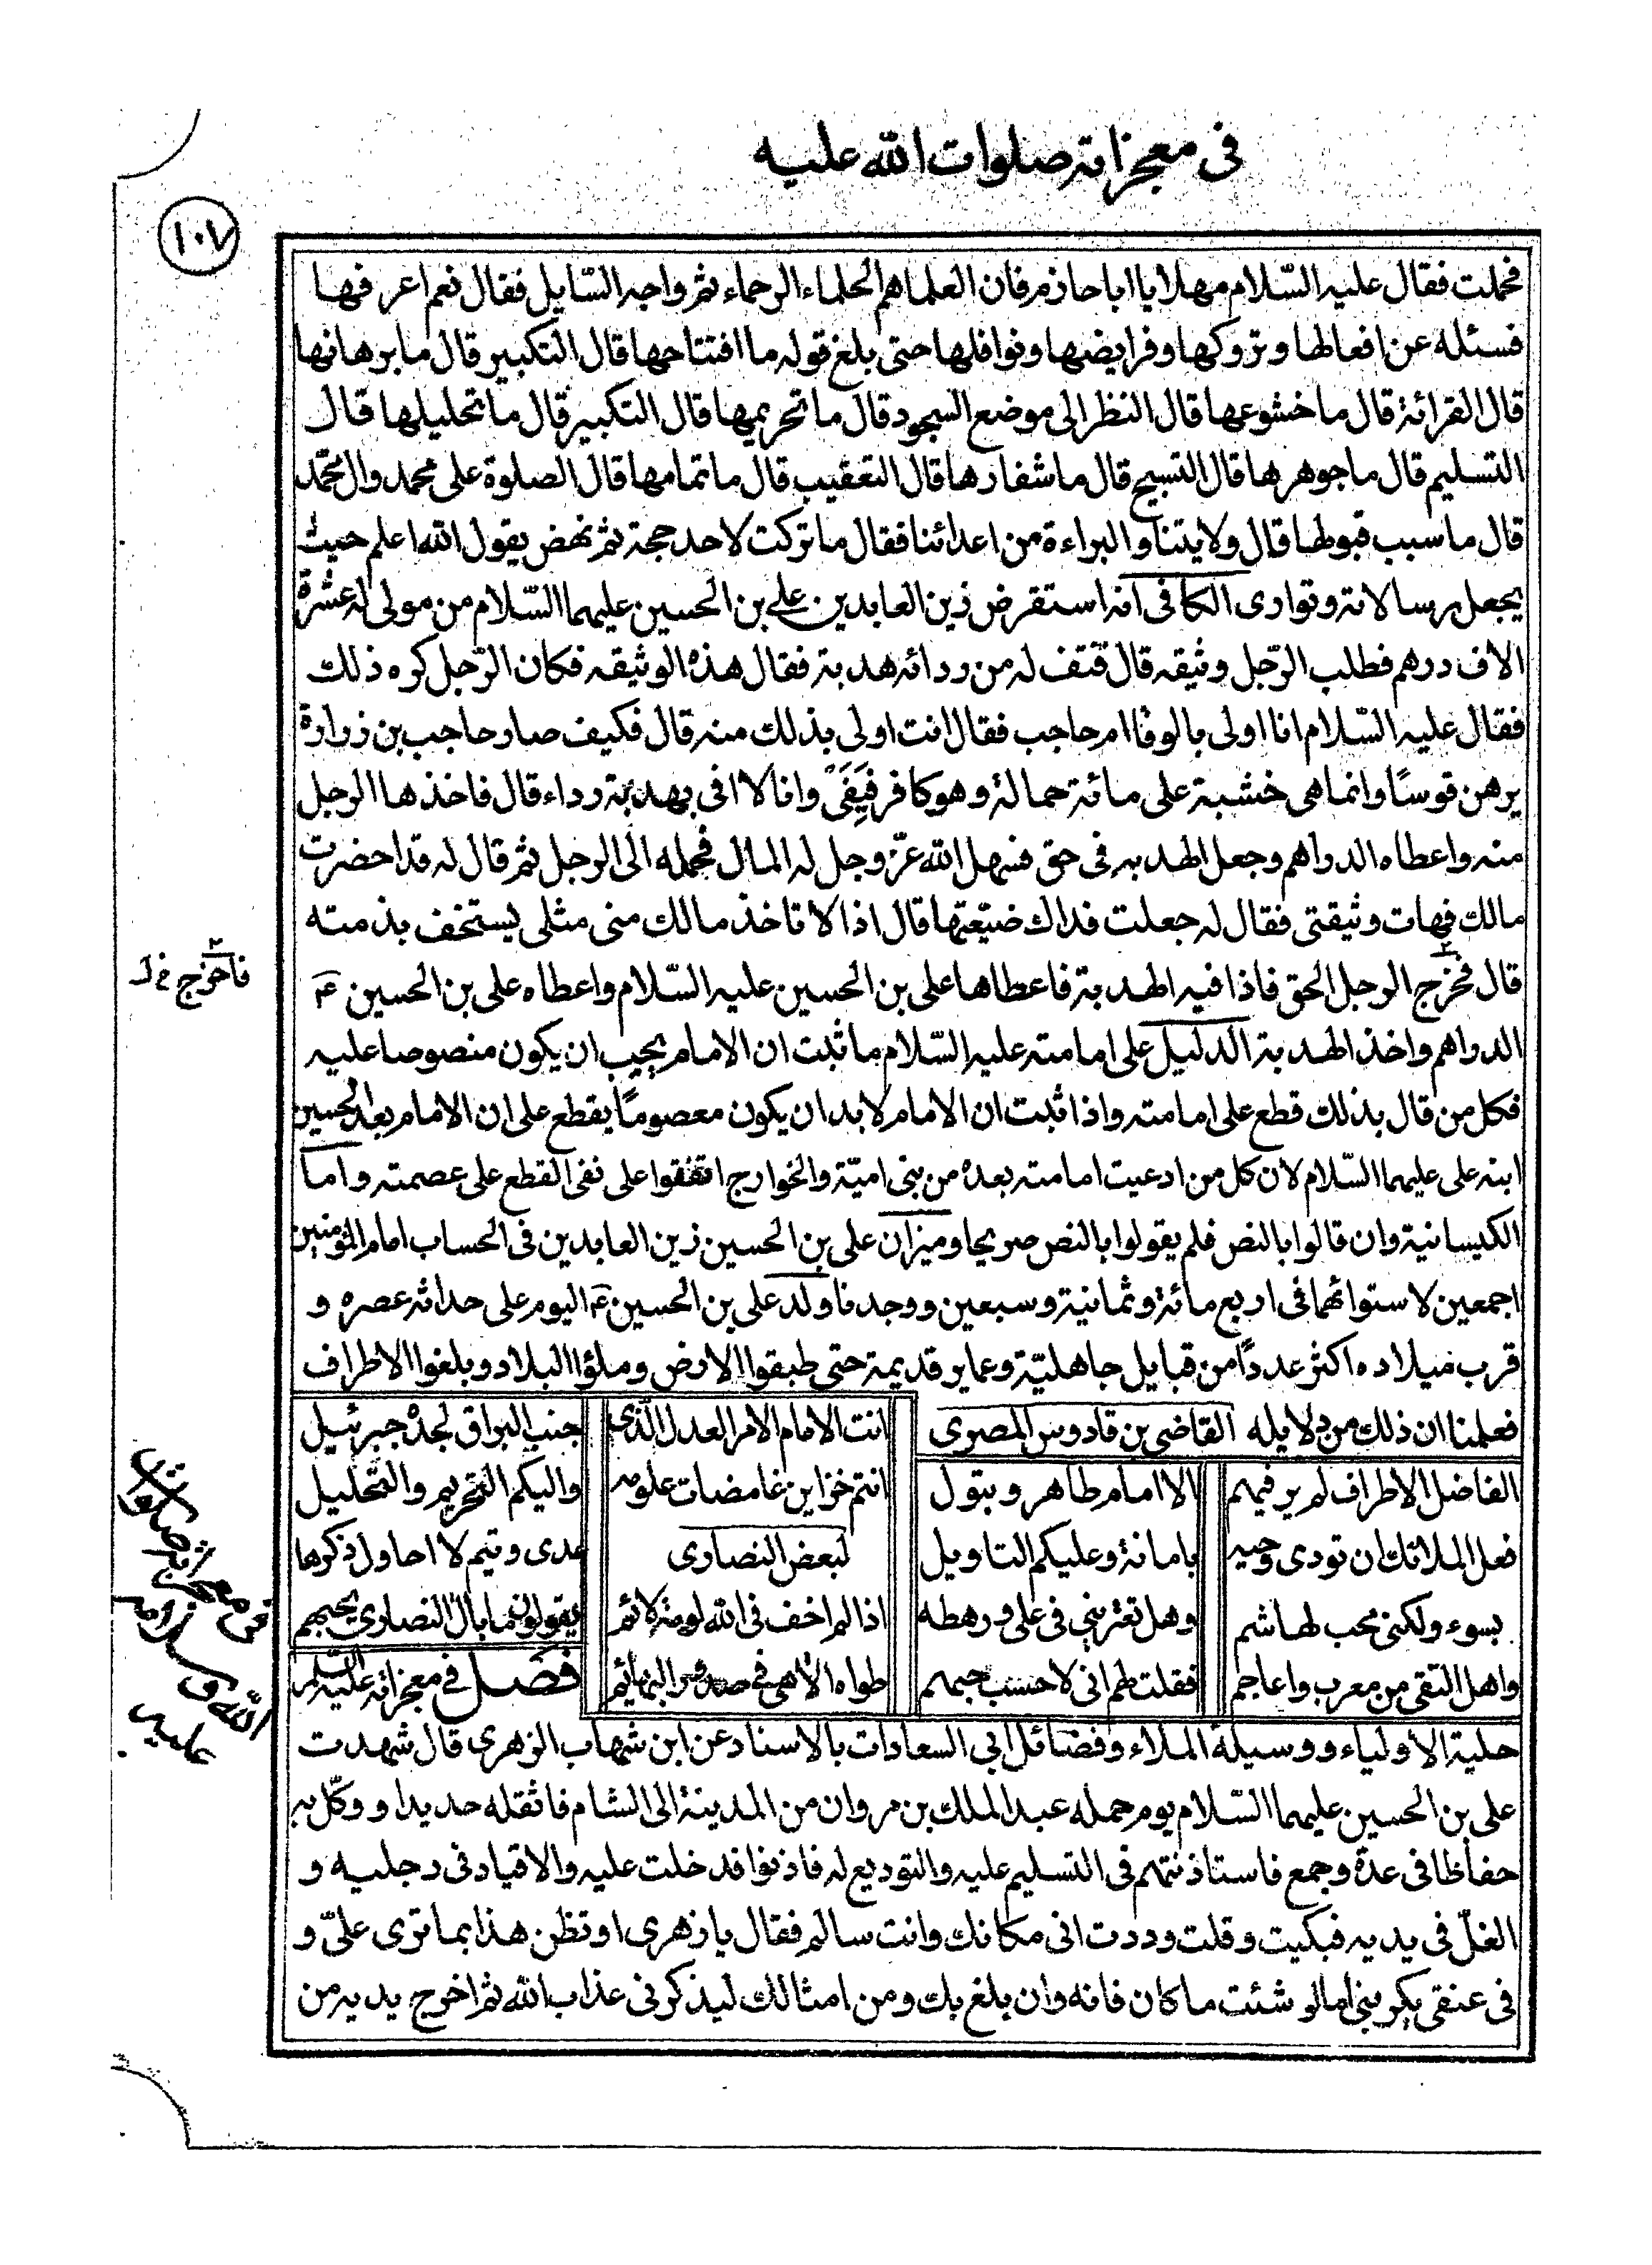 فى معجزاته صلوات الله عليه
١٠٧
فحملت فقال عليه السّلام مهلا يا ابا حازم فان العلما هم الحلماء الرحماء ثم واجه السّايل فقال نعم اعرفها
فسئله عن افعالها وتروكها وفرايضها ونوافلها حتى بلغ قوله ما افتتاحها قال التكبير قال ما برهانها
قال القرائة قال ما خشوعها قال النظر الى موضع السجود قال ما تحريمها قال التكبير قال ما تحليلها قال
التسليم قال ما جوهرها قال التسبيح قال ما شفارها قال التعقيب قال ما تمامها قال الصلوة على محمد وال محمّد
قال ما سبب قبولها قال ولايتنا والبراءة من اعدائنا فقال ما تركت لاحد حجة ثم نهض يقول الله اعلم حيث
يجعل رسالاته وتوارى الكافى انه استقرض زين العابدين على بن الحسين عليهما السّلام من مولى له عشرة
الاف درهم فطلب الرّجل وثيقه قال فنتف له من ردائه هدبة فقال هذه الوثيقه فكان الرّجل كره ذلك
فقال عليه السّلام انا اولى بالوفا ام حاجب فقال انت اولى بذلك منه قال فكيف صار حاجب بن زرارة
يرهن قوسًا وانما هى خشبة على مائة حمالة وهو كافر فيَفى وانا لا افى بهدبة رداء قال فاخذها الرجل
منه واعطاه الدراهم وجعل الهدبه فى حق فسهل الله عزّ وجل له المال فحمله الى الرجل ثم قال له قد احضرت
مالك فهات وثيقتى فقال له جعلت فداك ضيّعتها قال اذا لا تاخذ مالك منى مثلى يستخف بذمته
قال فخرج الرجل الحق فاذا فيه الهدبة فاعطاها على بن الحسين عليه السّلام واعطاه على بن الحسين ع
فاخرج خ ل
الدراهم واخذ الهدبة الدليل على امامته عليه السّلام ما ثبت ان الامام يجب ان يكون منصوصا عليه
فكل من قال بذلك قطع على امامته واذا ثبت ان الامام لا بد ان يكون معصومًا يقطع على ان الامام بعد الحسين
ابنه على عليهما السّلام لان كل من ادعيت امامته بعده من بنى اميّة والخوارج اتفقوا على نفى القطع على عصمته واما
الكيسانية وان قالوا بالنص فلم يقولوا بالنص صريحا وميزان على بن الحسين زين العابدين فى الحساب امام المؤمنين
اجمعين لاستوائهما فى اربع مائة وثمانية وسبعين ووجدنا ولد على بن الحسين ع اليوم على حداثه عصره و
قرب ميلاده اكثر عددًا من قبايل جاهليّة وعماير قديمة حتى طبقوا الارض وملؤا البلاد وبلغوا الاطراف
فعلمنا ان ذلك من دلايله القاضى بن قادوس المصرى
انت الامام الامر العدل الّذى
جنب البراق لجده جبرئيل
الفاضل الاطراف لم ير فيهم
الا امام طاهر وبتول
انتم خزاين غامضات علومه
واليكم التحريم والتحليل
فعل الملائك ان تودى وحيه
بامانة وعليكم التاويل
لبعض النصارى
عدى وتيم لا احاول ذكرها
بسوء ولكنى محب لهاشم
وهل تعترينى فى على ورهطه
اذا لم اخف فى الله لومة لائم
يقولون ما بال النصارى يحبهم
واهل التقى من معرب واعاجم
فقلت لهم انى لاحسب حبهم
طواه الاهى فى صدور البهائم
فصل فى معجزاته عليه السّلم
فى معجزاته صلوات الله وسلامه عليه
حلية الاولياء ووسيلة الملاء وفضائل ابى السعادات بالاسناد عن ابن شهاب الزهرى قال شهدت
على بن الحسين عليهما السّلام يوم حمله عبد الملك بن مروان من المدينة الى الشام فاثقله حديدا ووكّل به
حفاظا فى عدة وجمع فاستاذنتهم فى التسليم عليه والتوديع له فاذنوا فدخلت عليه والاقياد فى رجليه و
الغلّ فى يديه فبكيت وقلت وددت انى مكانك وانت سالم فقال يا زهرى اوتظن هذا بما ترى علىّ و
فى عنقى يكربنى اما لو شئت ما كان فانه وان بلغ بك ومن امثالك ليذكرنى عذاب الله ثم اخرج يديه من